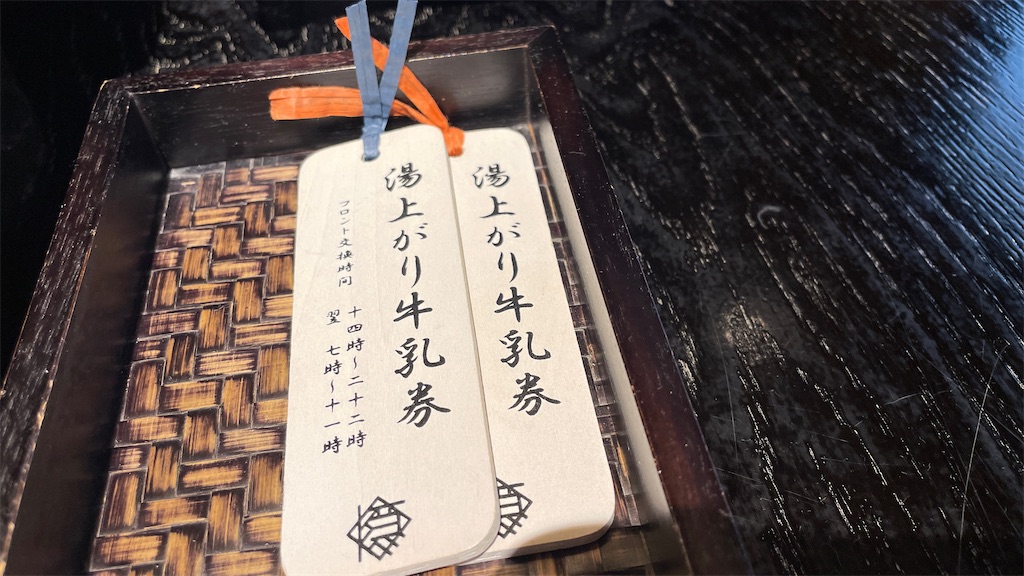 湯上がり牛乳券
フロント交換時間 十四時～二十二時
翌 七時～十一時
湯上がり牛乳券